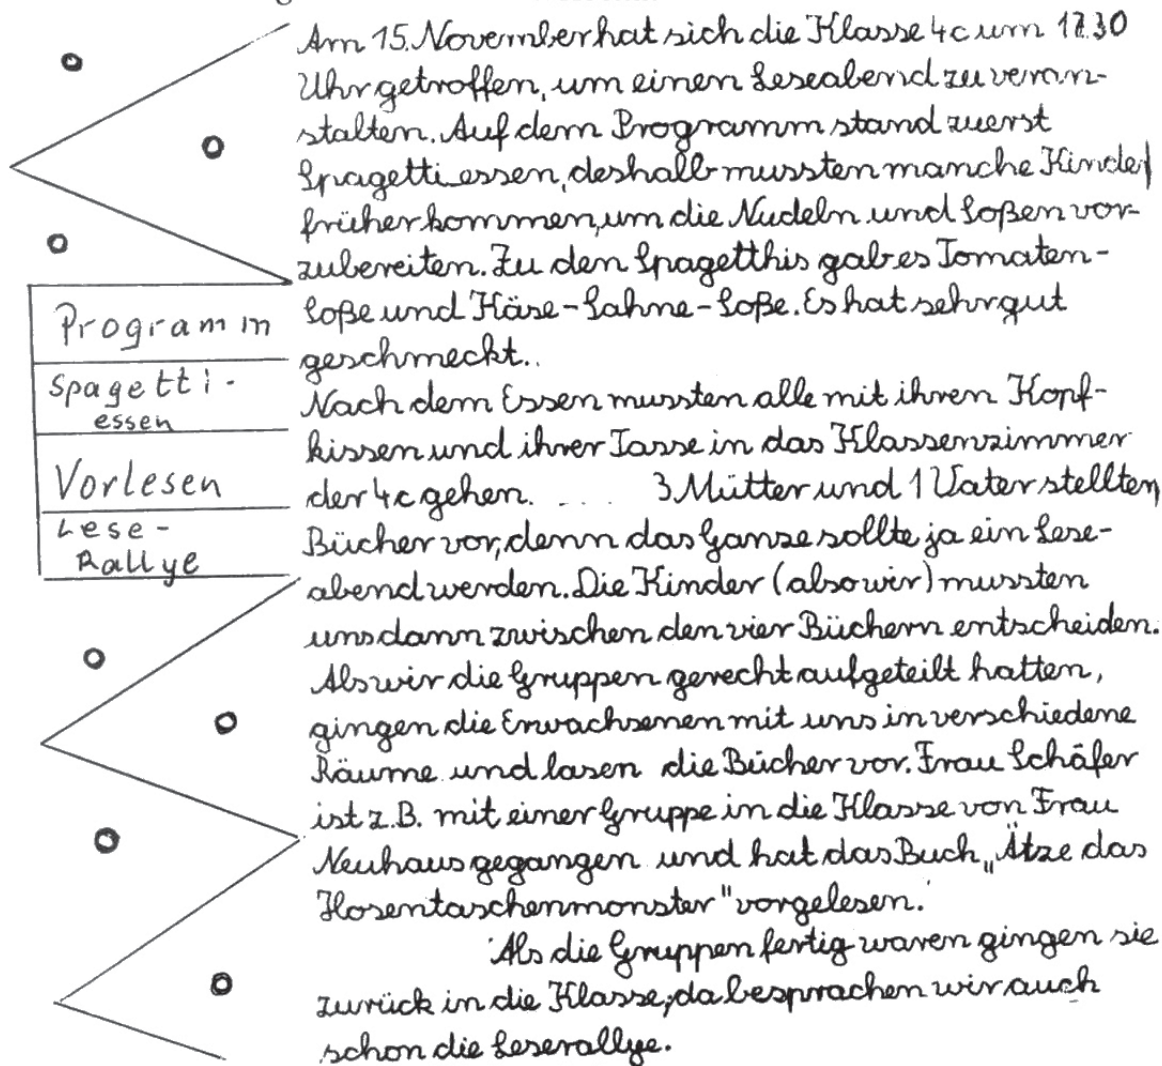 Am 15. November hat sich die Klasse 4c um 17.30
Uhr getroffen, um einen Leseabend zu veran-
stalten. Auf dem Programm stand zuerst
Spagetti essen, deshalb mussten manche Kinder
früher kommen, um die Nudeln und Soßen vor-
zubereiten. Zu den Spagetthis gab es Tomaten-
Soße und Käse-Sahne-Soße. Es hat sehr gut
geschmeckt..
Nach dem Essen mussten alle mit ihren Kopf-
kissen und ihrer Tasse in das Klassenzimmer
der 4c gehen. 3 Mütter und 1 Vater stellten
Bücher vor, denn das Ganze sollte ja ein Lese-
abend werden. Die Kinder (also wir) mussten
uns dann zwischen den vier Büchern entscheiden.
Als wir die Gruppen gerecht aufgeteilt hatten,
gingen die Erwachsenen mit uns in verschiedene
Räume und lasen die Bücher vor. Frau Schäfer
ist z.B. mit einer Gruppe in die Klasse von Frau
Neuhaus gegangen und hat das Buch „Ätze das
Hosentaschenmonster" vorgelesen.
Als die Gruppen fertig waren gingen sie
zurück in die Klasse, da besprachen wir auch
schon die Leserallye.
Programm
Spagetti-
essen
Vorlesen
Lese-
Rallye